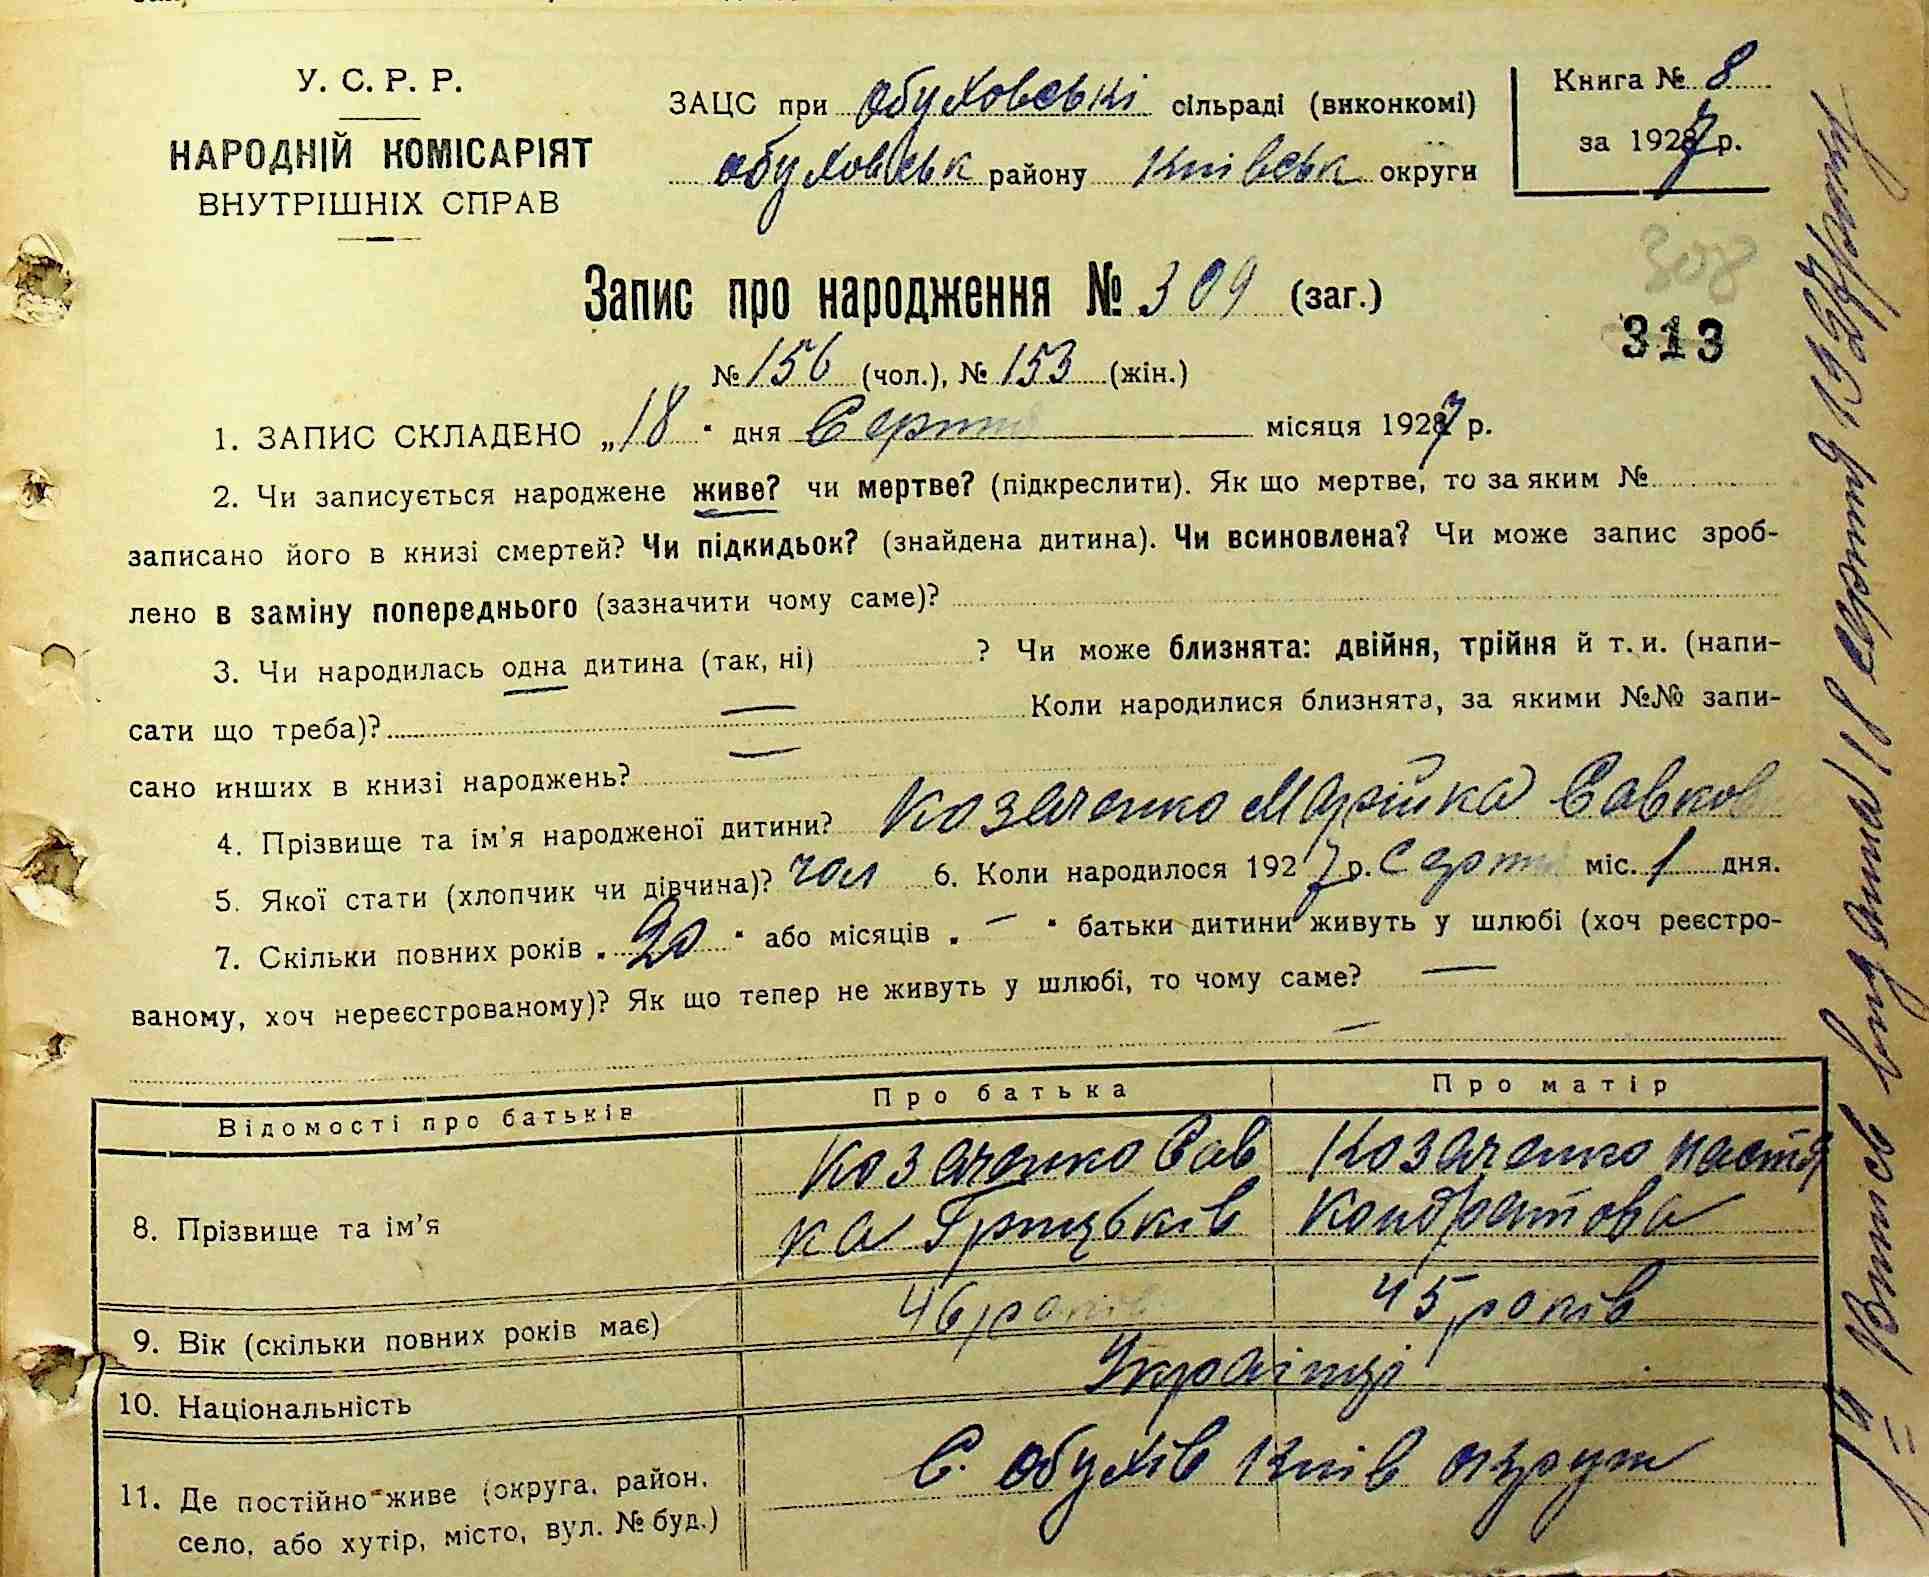 У. С. Р. Р.
НАРОДНІЙ КОМІСАРІЯТ
ВНУТРІШНІХ СПРАВ
ЗАЦС при Обуховські сільраді (виконкомі)
Обуховськ району Київськ округи
Книга № 8
за 1927 р.
308
313
Запис про народження № 309 (заг.)
№ 156 (чол.), № 153 (жін.)
1. ЗАПИС СКЛАДЕНО „18" дня Серпня місяця 1927 р.
2. Чи записується народжене живе? чи мертве? (підкреслити). Як що мертве, то за яким №
записано його в книзі смертей? Чи підкидьок? (знайдена дитина). Чи всиновлена? Чи може запис зроб-
лено в заміну попереднього (зазначити чому саме)?
3. Чи народилась одна дитина (так, ні) ? Чи може близнята: двійня, трійня й т. и. (напи-
сати що треба)? — Коли народилися близнята, за якими №№ запи-
сано инших в книзі народжень? —
4. Прізвище та ім'я народженої дитини? Козаченко Марійка Савков
5. Якої стати (хлопчик чи дівчина)? чол 6. Коли народилося 1927 р. Серпн міс. 1 дня.
7. Скільки повних років „20" або місяців „—" батьки дитини живуть у шлюбі (хоч реєстро-
ваному, хоч нереєстрованому)? Як що тепер не живуть у шлюбі, то чому саме? —
—
Відомості про батьків Про батька Про матір
8. Прізвище та ім'я Козаченко Сав Козаченко Настя
ка Грицьків Кондратова
9. Вік (скільки повних років має) 46 років 45 років
10. Національність Українці
11. Де постійно живе (округа, район, С. Обухів Київ округи
село, або хутір, місто, вул. № буд.)
Витяг видана 18 серпня 1927 року